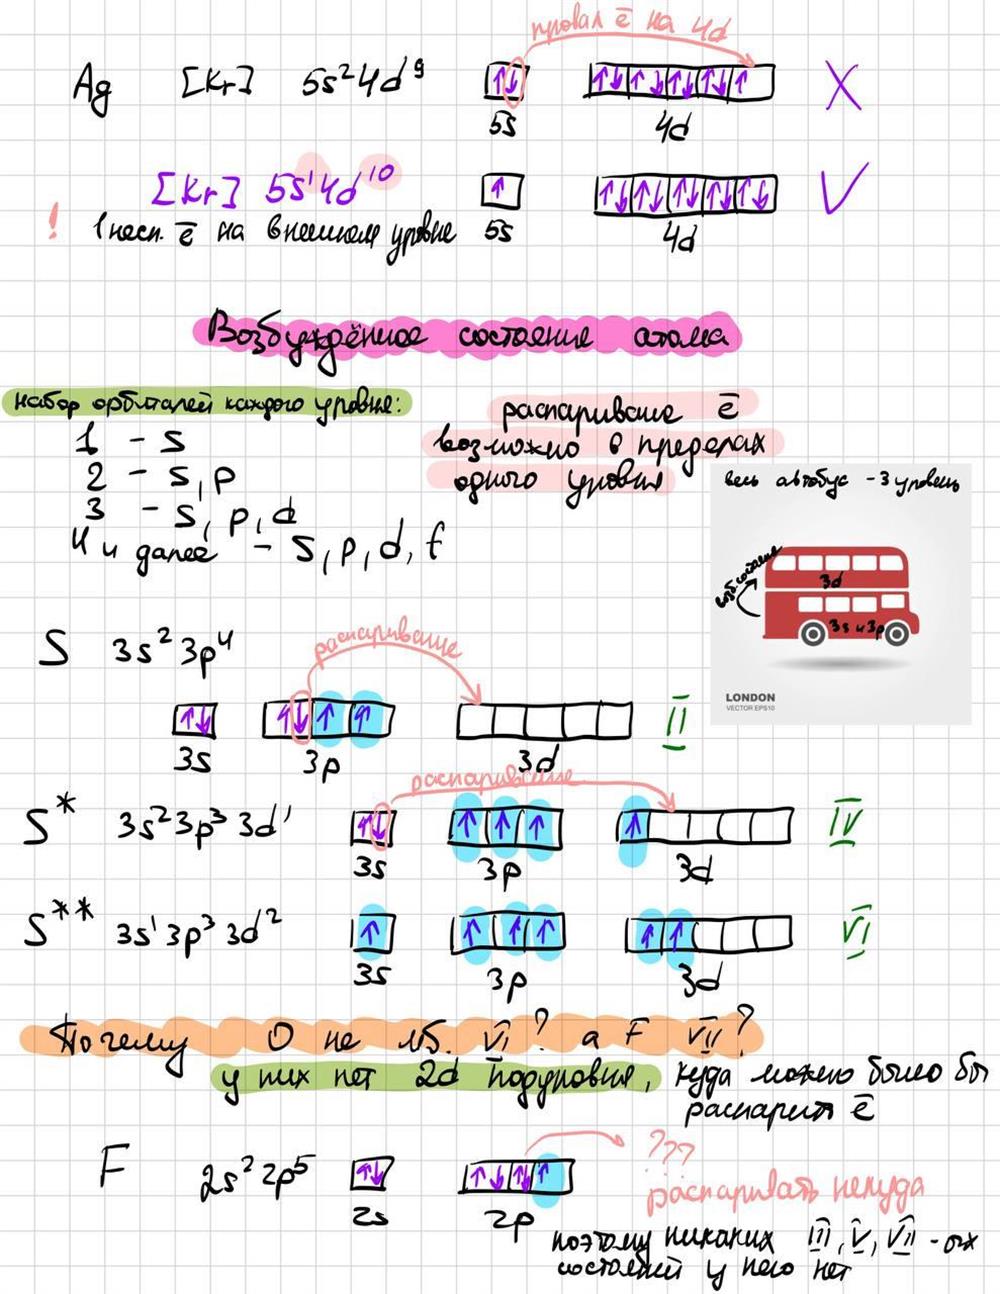 провал ē на 4d
Ag [Kr] 5s²4d⁹ ↑↓ ↑↓ ↑↓ ↑↓ ↑↓ ↑ X
5s 4d
[Kr] 5s¹4d¹⁰ ↑ ↑↓ ↑↓ ↑↓ ↑↓ ↑↓ V
! 1 несп. ē на внешнем уровне 5s 4d
Возбуждённое состояние атома
набор орбиталей каждого уровня:
1 - s
2 - s, p
3 - s, p, d
4 и далее - s, p, d, f
распаривание ē
возможно в пределах
одного уровня
весь автобус - 3 уровень
3d
3s и 3p
LONDON
VECTOR EPS10
распаривание
S 3s²3p⁴
↑↓ ↑↓ ↑ ↑ II
3s 3p 3d
распаривание
S* 3s²3p³3d¹ ↑↓ ↑ ↑ ↑ ↑ IV
3s 3p 3d
S** 3s¹3p³3d² ↑ ↑ ↑ ↑ ↑ ↑ VI
3s 3p 3d
Почему O не м.б. VI? а F VII?
у них нет 2d подуровня, куда можно было бы
распарить ē
F 2s²2p⁵ ↑↓ ↑↓ ↑↓ ↑ ???
2s 2p распаривать некуда
поэтому никаких III, V, VII - ых
состояний у него нет